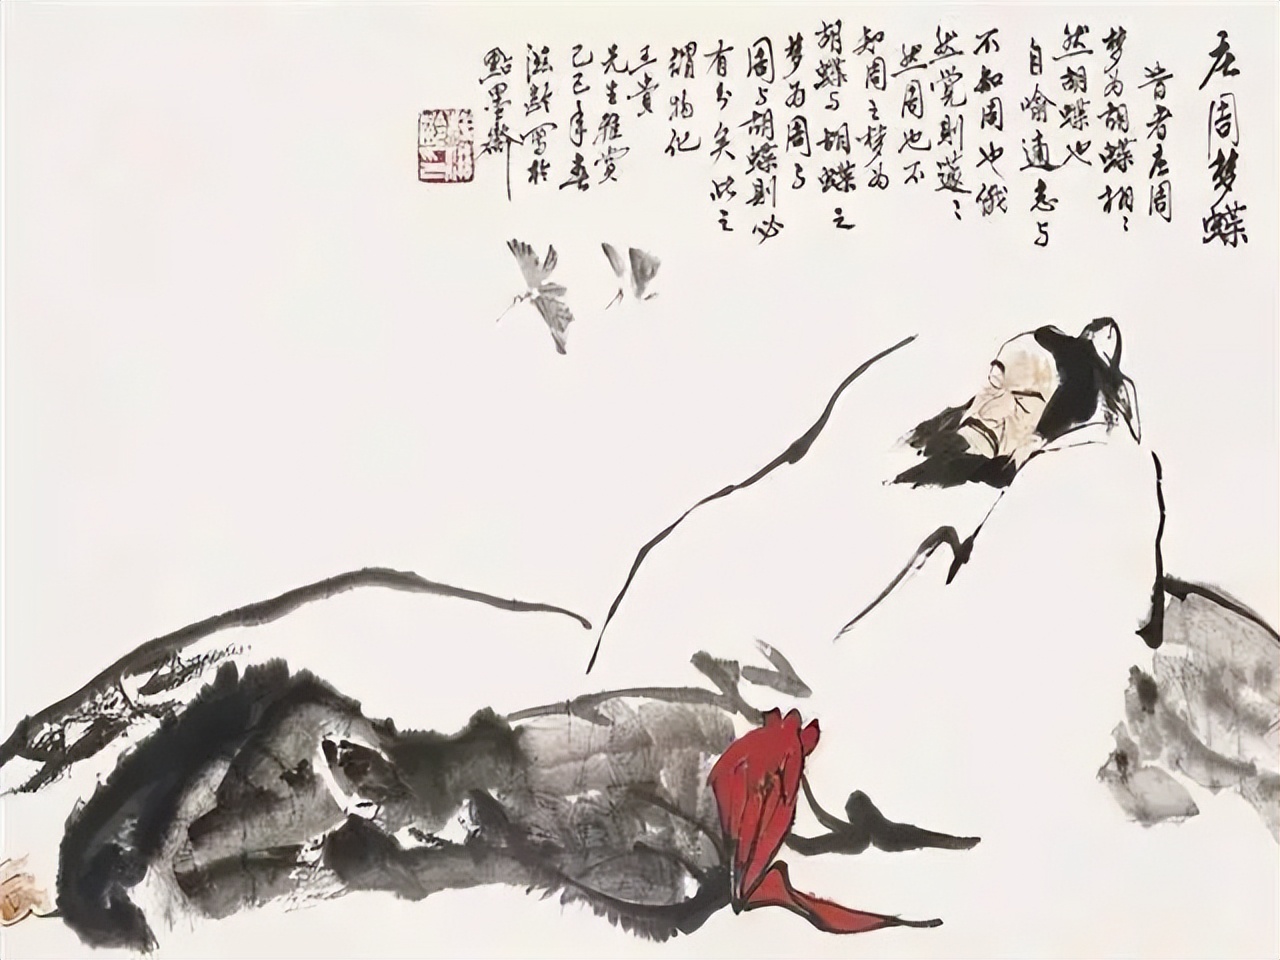 庄周梦蝶
昔者庄周
梦为胡蝶栩〻
然胡蝶也
自喻適志与
不知周也俄
然觉則蘧〻
然周也不
知周之梦为
胡蝶与胡蝶之
梦为周与
周与胡蝶則必
有分矣此之
謂物化
王貴
先生雅赏
己巳年春
滋龄寫於
點墨齋